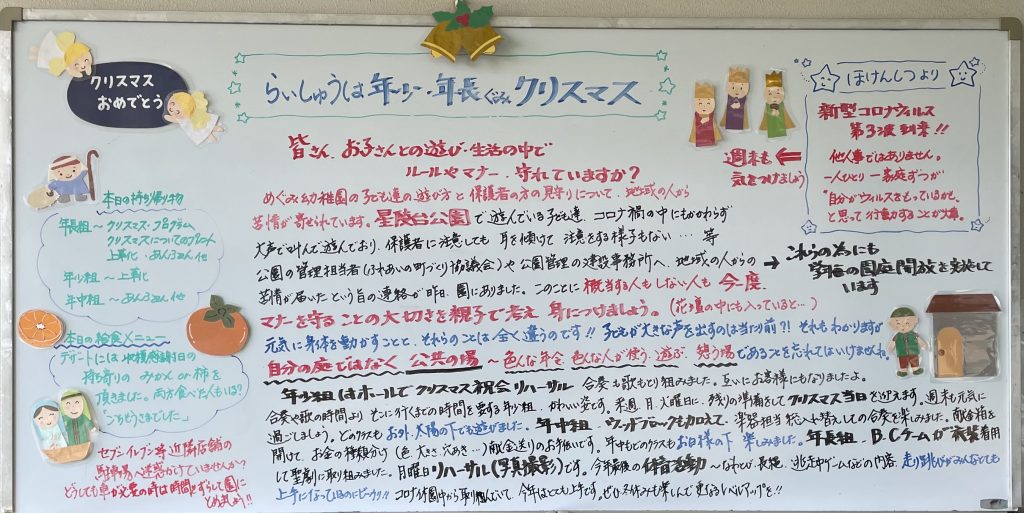 クリスマス
おめでとう
らいしゅうは年少・年長ぐみクリスマス
ほけんしつより
新型コロナウィルス
第3波到来!!
他人事ではありません。
一人ひとり 一家庭ずつが
"自分がウィルスをもっているかも、
と思って行動することが大事。
週末も
気をつけましょう
皆さん、お子さんとの遊び・生活の中で
ルールやマナー、守れていますか?
めぐみ幼稚園の子ども達の遊び方と保護者の方の見守りについて、地域の人から
苦情が寄せられています。星陵台公園で遊んでいる子ども達、コロナ禍の中にもかかわらず
大声で叫んで遊んでおり、保護者に注意しても耳を傾けて注意をする様子もない… 等
公園の管理担当者(ふれあいの町づくり協議会)や公園管理の建設事務所へ、地域の人からの
苦情が届いたという旨の連絡が昨日、園にありました。このことに該当する人もしない人も今一度、
マナーを守ることの大切さを親子で考え身につけましょう。(花壇の中にも入っていると…)
元気に身体を動かすことと、それらのことは全く違うのです!! 子どもが大きな声を出すのは当たり前?! それもわかりますが
自分の庭ではなく 公共の場 ~色んな年令 色んな人が使う、遊ぶ、憩う場であることを忘れてはいけませんね。
→これらの為にも
園庭開放を実施して
います
本日の持ち帰り物
年長組~クリスマス・プログラム、
クリスマスについてのプリント
上靴・あんふぁん 他
年少組~上靴
年中組~あんふぁん 他
本日の給食メニュー
デザートには収穫感謝日の
持ち寄りのみかんor柿を
頂きました。両方食べた人もいる?
「ごちそうさまでした」
セブンイレブン等近隣店舗の
駐車場へ迷惑かけていませんか?
どうしても車が必要の時は時間をずらして園に
とめましょう!!
年少組はホールでクリスマス祝会リハーサル 合奏も歌もとり組みました。互いにお客様にもなりましたよ。
合奏や歌の時間より、そこに行くまでの時間を要する年少組、かわいい姿です。来週、月、火曜日に、残りの準備をしてクリスマス当日を迎えます。週末も元気に
過ごしましょう。どのクラスもお外、太陽の下でも遊びました。年中組、ウッドブロックも加えて、楽器担当総入れ替えしての合奏を楽しみました。献金箱を
開けて、お金の種類分け(色、大きさ、穴あき…)(献金送り)のお手伝いです。年中もどのクラスもお日様の下楽しみました。年長組、B.Cチームが衣装着用
して聖劇に取り組みました。月曜日リハーサル(写真撮影)です。今年最後の体育活動~なわとび・長縄、逃走中ゲームなどの内容、走り跳びがみんなとても
上手になっているのにビックリ!! コロナ休園中から取り組んでいて、今年はとても上手です。ぜひ冬休みも楽しんで更なるレベルアップを!!